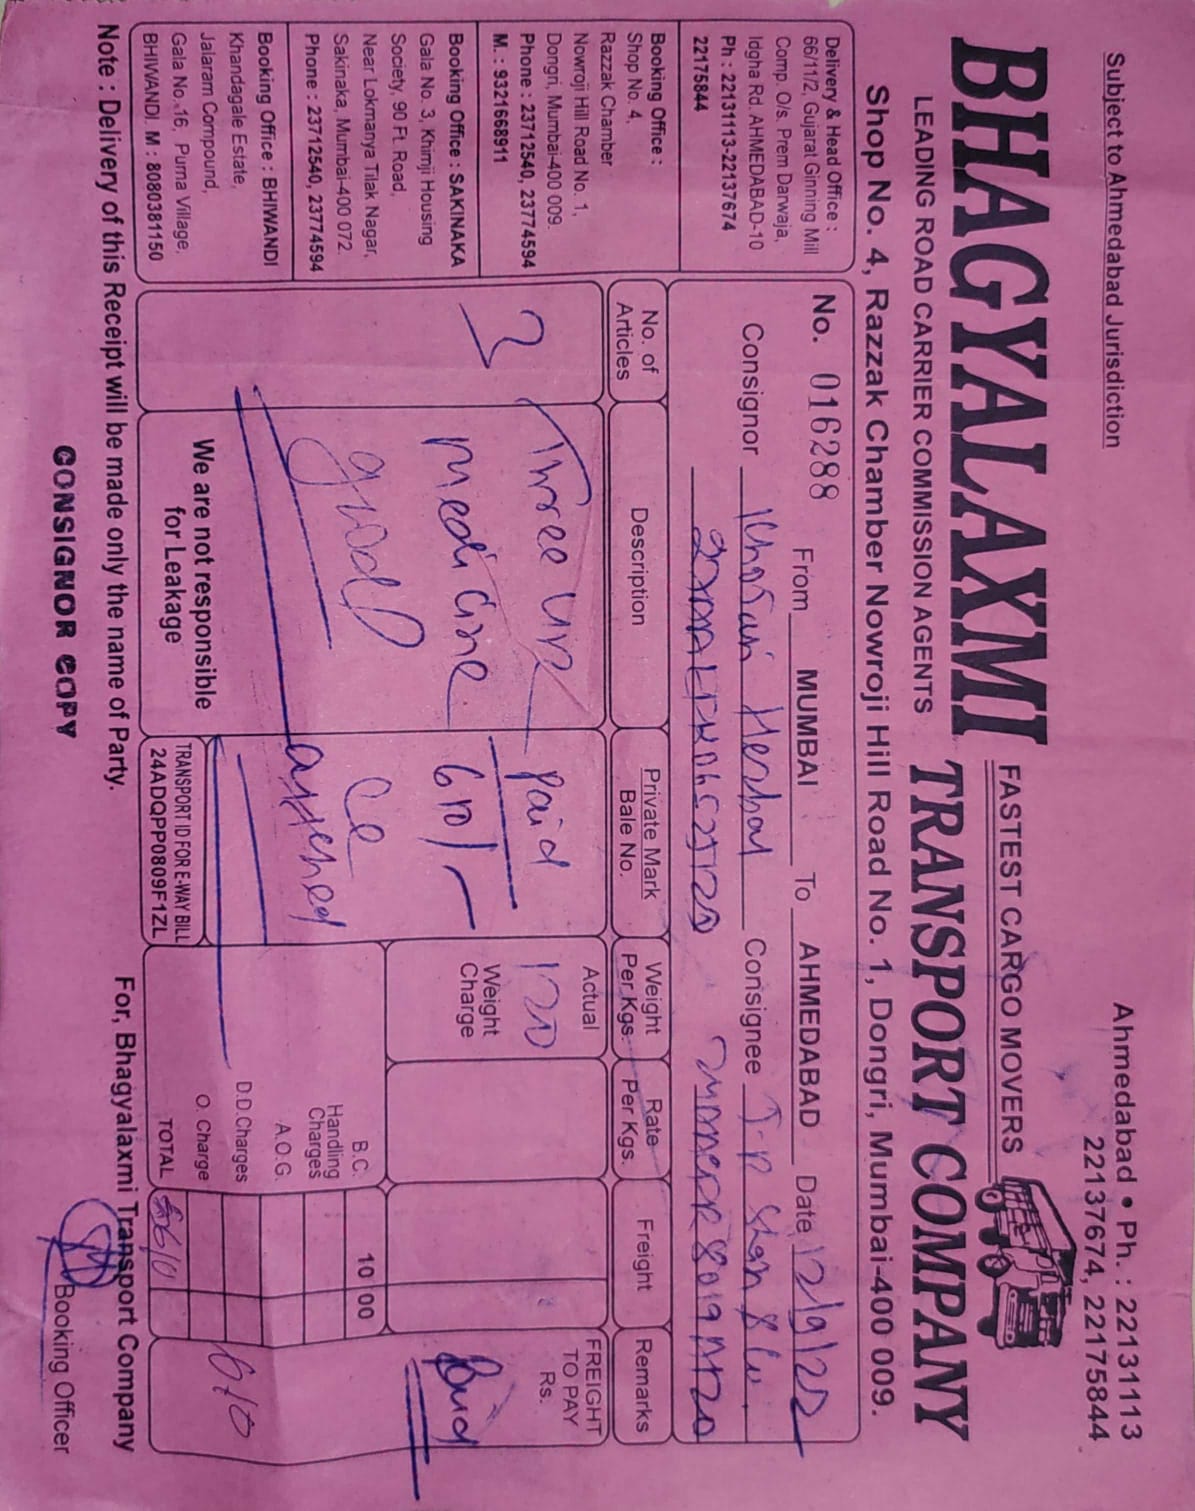 Subject to Ahmedabad Jurisdiction
Ahmedabad • Ph. : 22131113
22137674, 22175844
BHAGYALAXMI
FASTEST CARGO MOVERS
TRANSPORT COMPANY
LEADING ROAD CARRIER COMMISSION AGENTS
Shop No. 4, Razzak Chamber Nowroji Hill Road No. 1, Dongri, Mumbai-400 009.
Delivery & Head Office :
66/11/2, Gujarat Ginning Mill
Comp. O/s. Prem Darwaja,
Idgha Rd. AHMEDABAD-10
Ph : 22131113-22137674
22175844
Booking Office :
Shop No. 4,
Razzak Chamber
Nowroji Hill Road No. 1,
Dongri, Mumbai-400 009.
Phone : 23712540, 23774594
M. : 9321668911
Booking Office : SAKINAKA
Gala No. 3, Khimji Housing
Society, 90 Ft. Road,
Near Lokmanya Tilak Nagar,
Sakinaka, Mumbai-400 072.
Phone : 23712540, 23774594
Booking Office : BHIWANDI
Khandagale Estate,
Jalaram Compound,
Gala No. 16, Purna Village,
BHIWANDI M : 8080381150
No. 016288 From MUMBAI To AHMEDABAD Date 12/9/22
Consignor Consignee
No. of Articles
Description
Private Mark
Bale No.
Weight Per Kgs.
Rate Per Kgs.
Freight
Remarks
3
Three
medicine
good
paid
610/-
Actual
120
Weight
Charge
FREIGHT
TO PAY
Rs.
B.C. 10 00
Handling
Charges
A.O.G.
D.D.Charges
O. Charge
TOTAL 610
610
We are not responsible
for Leakage
TRANSPORT ID FOR E-WAY BILL
24ADQPP0809F1ZL
Note : Delivery of this Receipt will be made only the name of Party.
For, Bhagyalaxmi Transport Company
CONSIGNOR COPY
Booking Officer